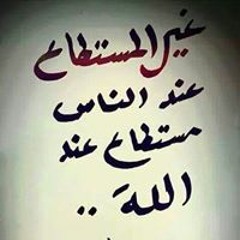 غير المستطاع
عند الناس
مستطاع عند
اللهَ ..